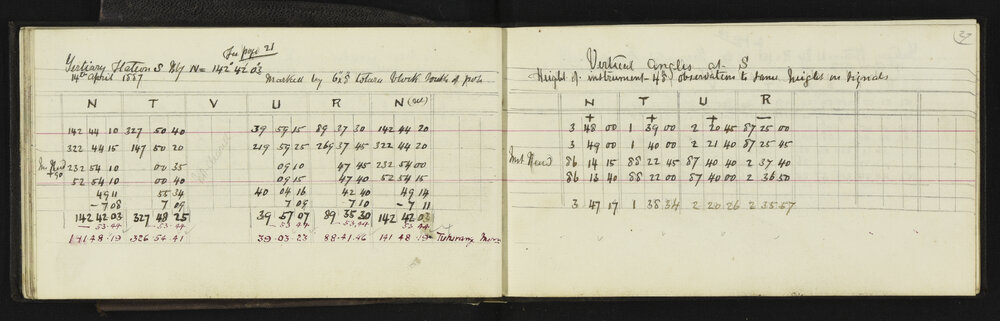 See page 21
Tertiary Station S N= 142° 42' 03
14th April 1887 Marked by 6x5 totara block South of pole
N T V U R N (ret)
142 44 10 327 50 40 39 59 15 89 37 30 142 44 20
322 44 15 147 50 20 219 59 25 269 37 45 322 44 20
232 54 10 00 35 09 10 47 45 232 54 00
52 54 10 00 40 09 15 47 40 52 54 15
49 11 55 34 40 04 16 42 40 49 14
- 7 08 7 09 7 09 - 7 10 - 7 11
142 42 03 327 48 25 39 57 07 89 35 30 142 42 03
- 53.44 - 53.44 - 53.44 - 53.44 53.44
141.48.19 326.54.41 39.03.23 88.41.46 141.48.19
22
Vertical Angles at S
Height of instrument 4.8 observation to same height on signals
N T U R
+ + + -
3 48 00 1 39 00 2 20 45 87 25 00
3 49 00 1 40 00 2 21 40 87 25 45
Inst Revd 86 14 15 88 22 45 87 40 40 2 37 40
86 13 40 88 22 00 87 40 00 2 36 50
3 47 17 1 38 34 2 20 26 2 35 57